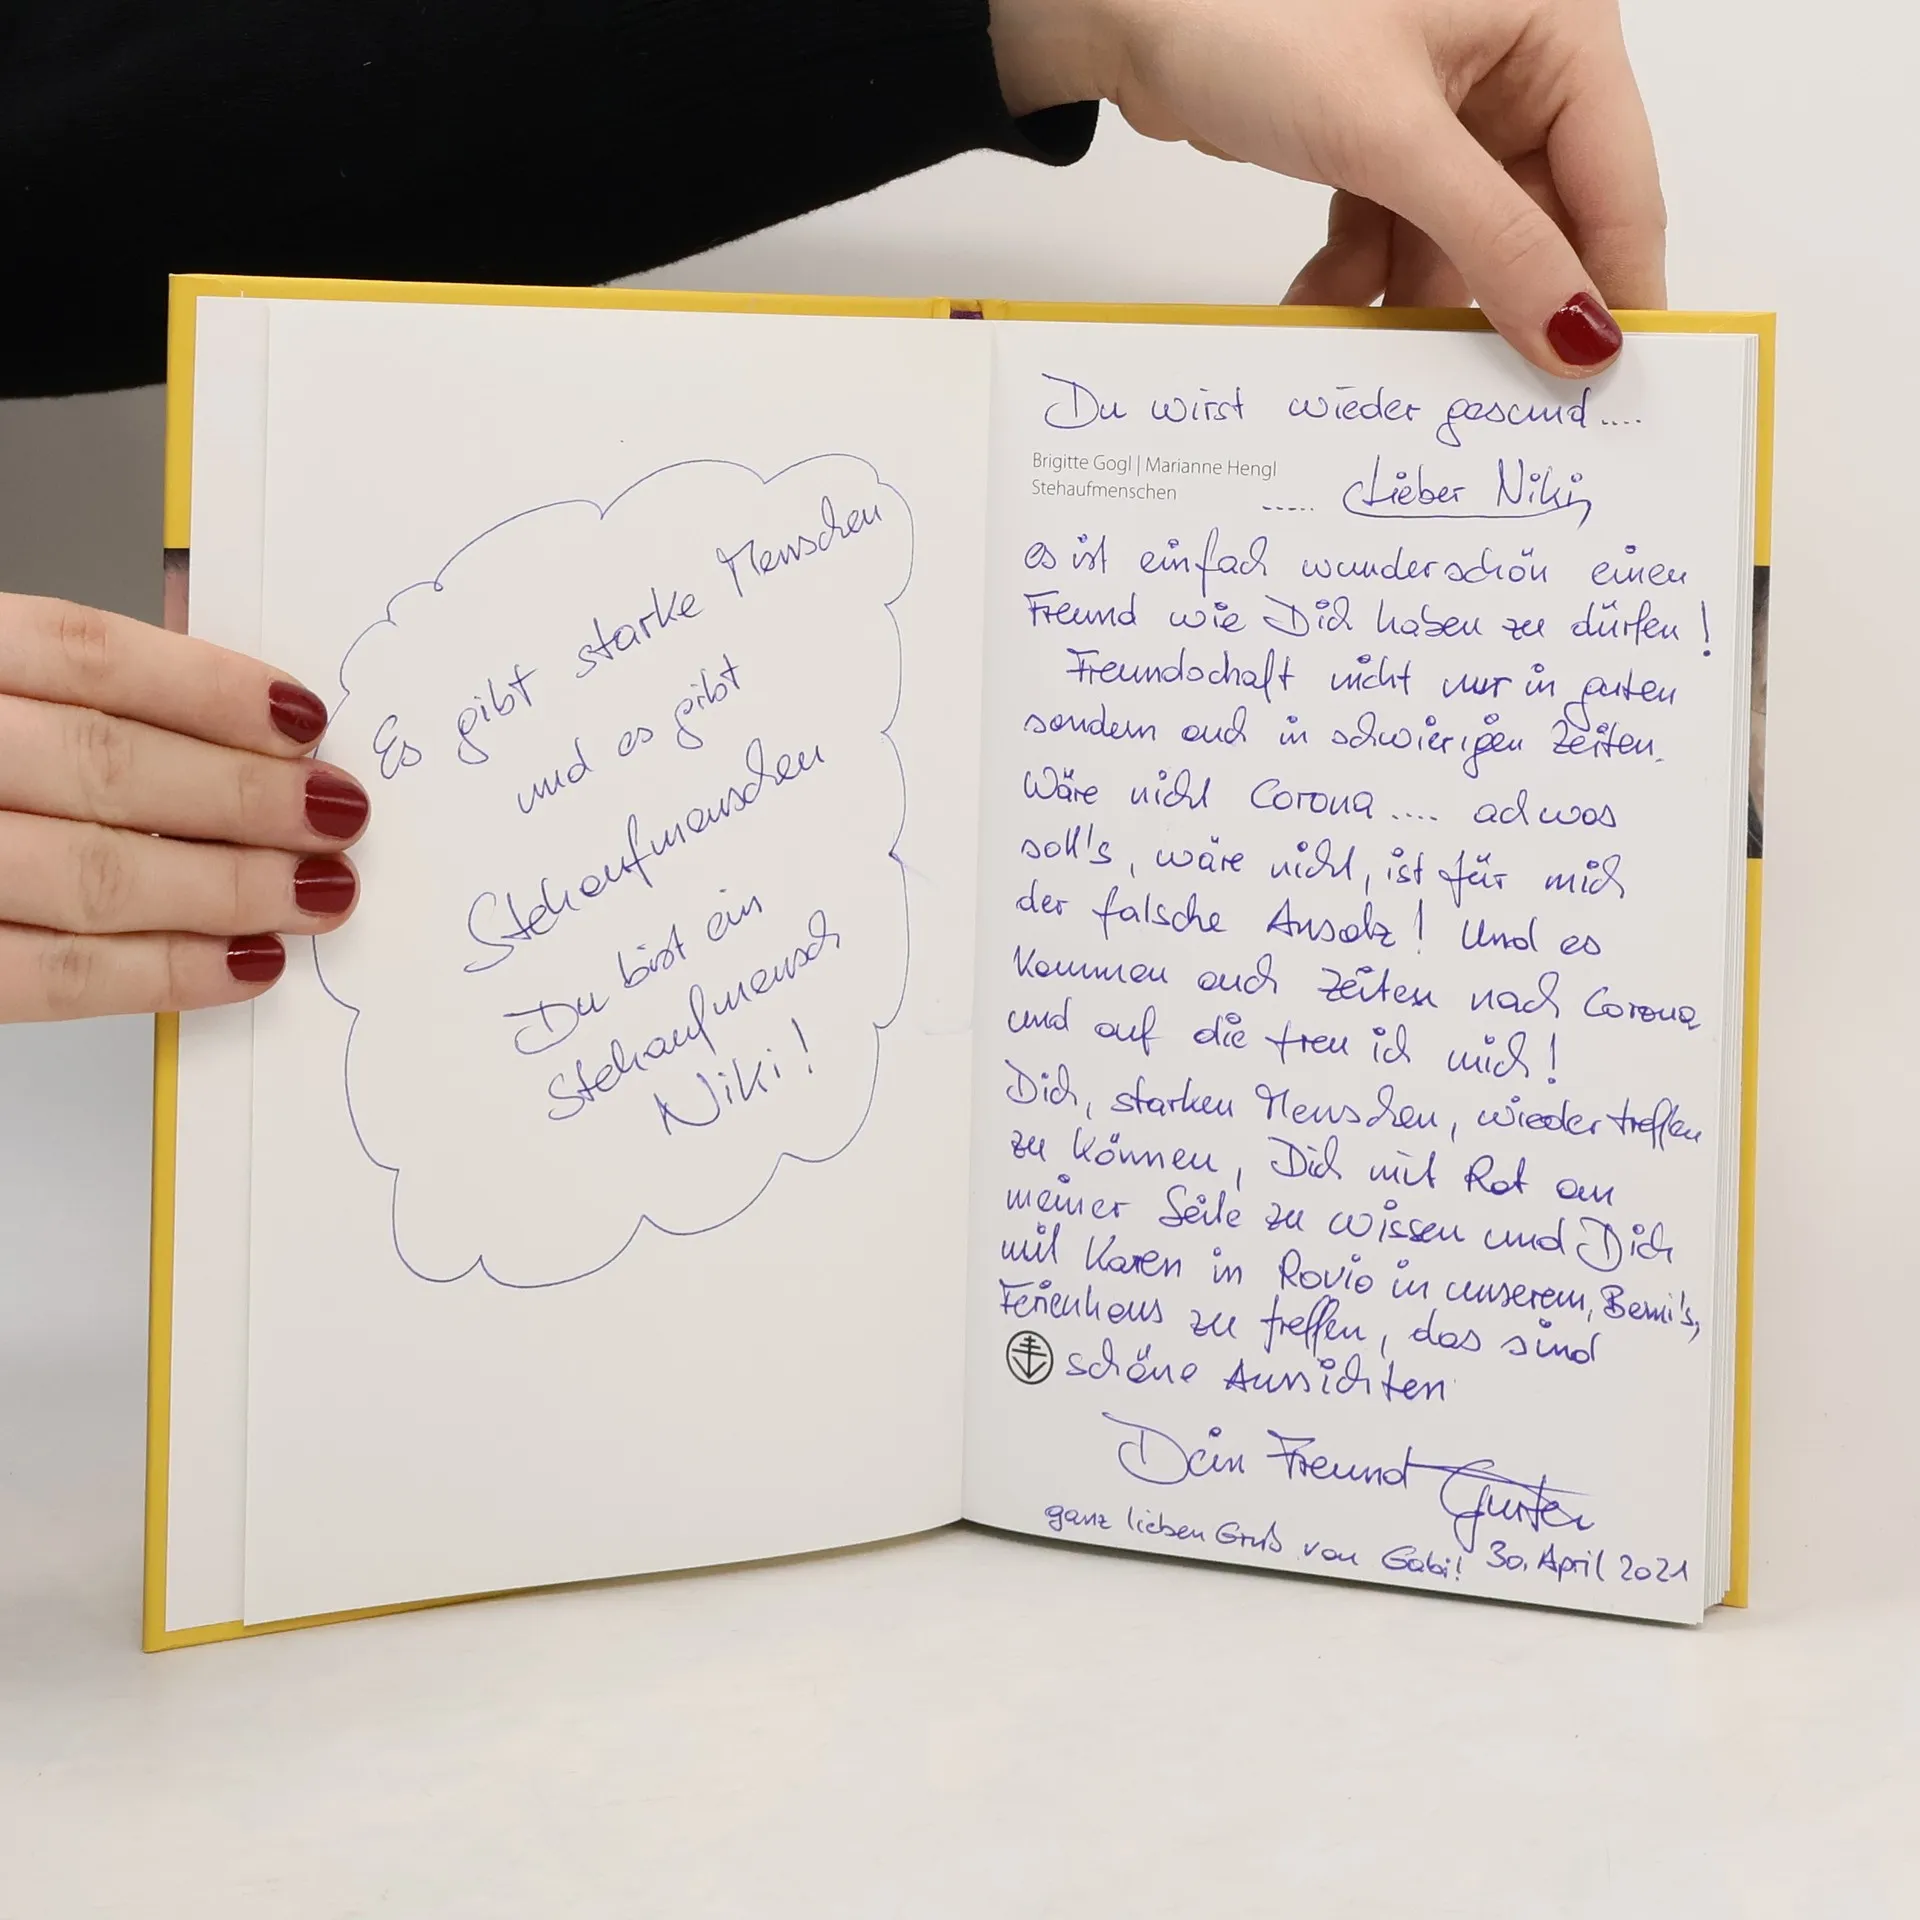 Es gibt starke Menschen
und es gibt
Stehaufmenschen
Du bist ein
Stehaufmensch
Niki!
Du wirst wieder gesund....
Brigitte Gogl | Marianne Hengl
Stehaufmenschen
..... Lieber Niki,
es ist einfach wunderschön einen
Freund wie Dich haben zu dürfen!
Freundschaft nicht nur in guten
sondern auch in schwierigen Zeiten.
Wäre nicht Corona.... ach was
soll's, wäre nicht, ist für mich
der falsche Ansatz! Und es
kommen auch Zeiten nach Corona
und auf die freu ich mich!
Dich, starken Menschen, wieder treffen
zu können, Dich mit Rat an
meiner Seite zu wissen und Dich
mit Karen in Rovio in unserem, Berni's,
Ferienhaus zu treffen, das sind
schöne Aussichten
Dein Freund
ganz lieben Gruß von Gabi! 30. April 2021